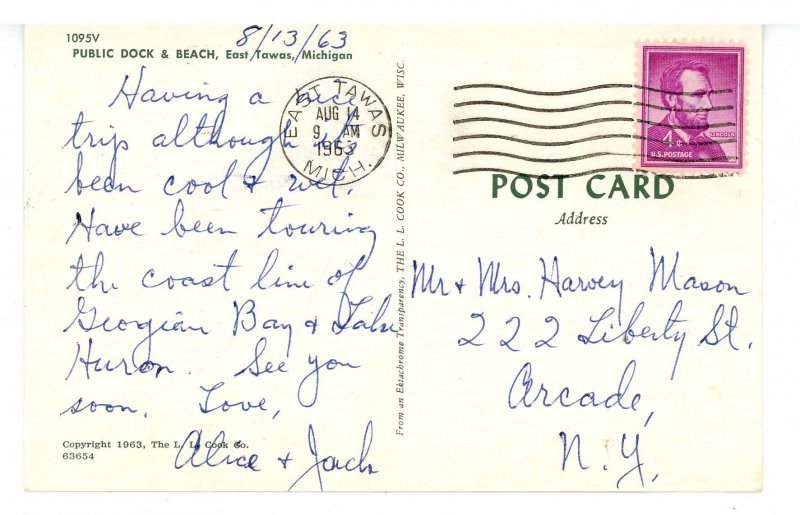 1095V
8/13/63
PUBLIC DOCK & BEACH, East Tawas, Michigan
Having a nice
trip although it's
been cool & wet.
Have been touring
the coast line of
Georgian Bay & Lake
Huron. See you
soon. Love,
Alice & Jack
Copyright 1963, The L. L. Cook Co.
63654
EAST TAWAS
AUG 14
9 AM
1963
MICH.
From an Ektachrome Transparency, THE L. L. COOK CO., MILWAUKEE, WISC.
LINCOLN
4¢
U.S. POSTAGE
POST CARD
Address
Mr & Mrs. Harvey Mason
222 Liberty St.
Arcade,
N.Y.